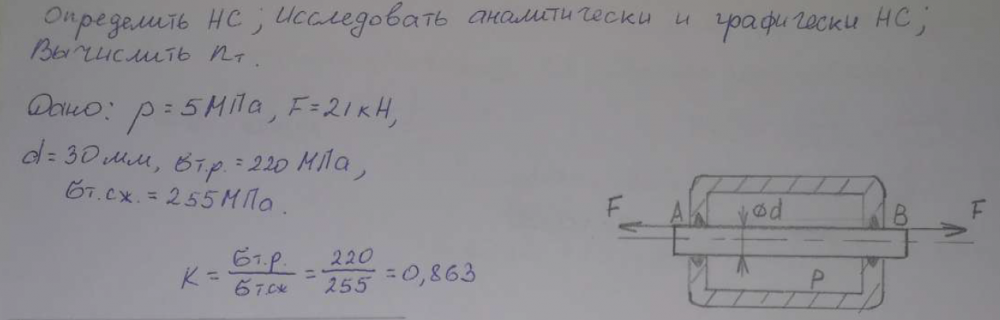 Определить НС; Исследовать аналитически и графически НС;
Вычислить nт.
Дано: p = 5 МПа, F = 21 кН,
d = 30 мм, σт.р. = 220 МПа,
σт.сж. = 255 МПа.
K = σт.р. / σт.сж = 220 / 255 = 0,863
F A ⌀d B F
P